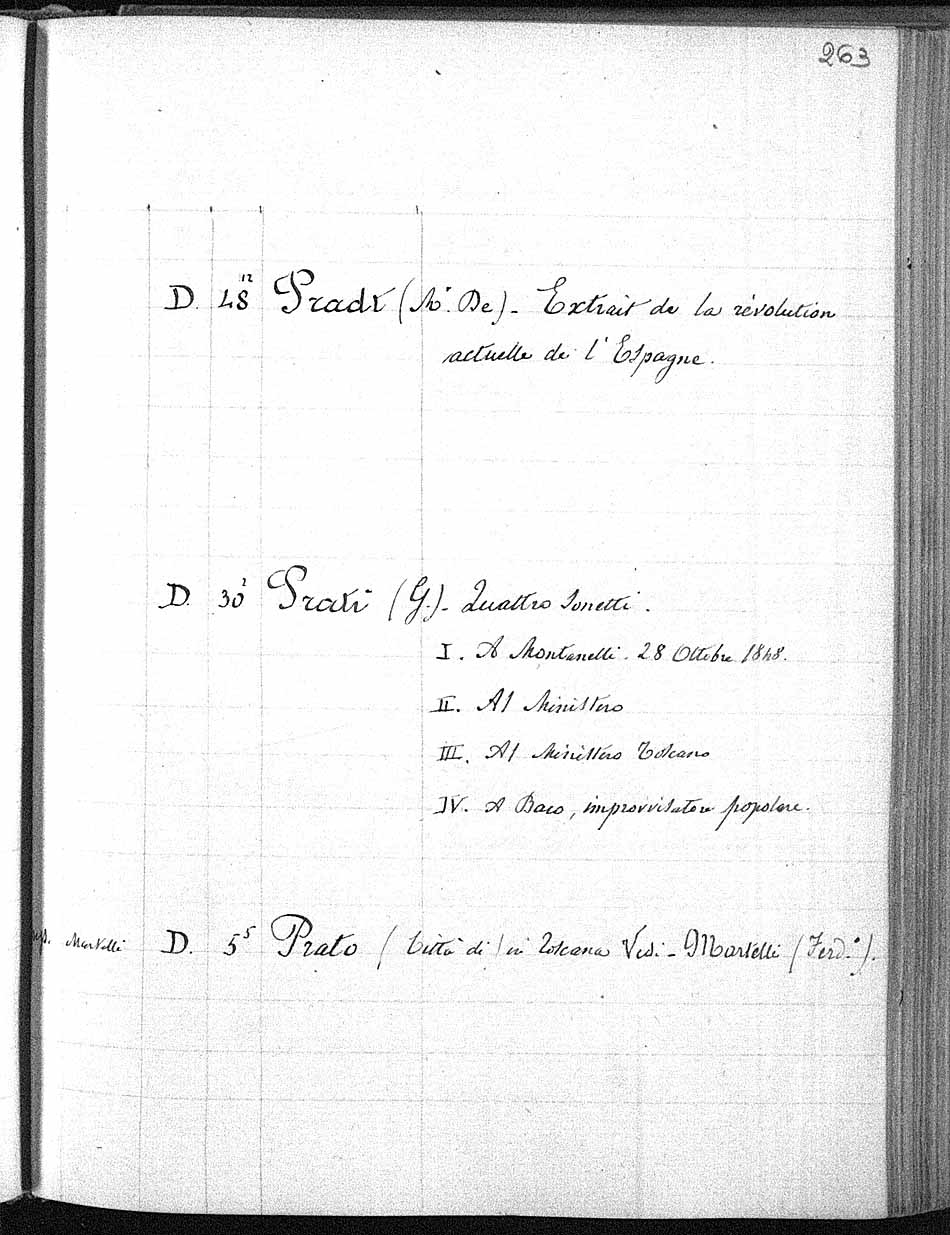 263
D. 48¹² Pradt (M.r De) - Extrait de la révolution
actuelle de l'Espagne.
D. 30¹ Prati (G.) - Quattro Sonetti.
I. A Montanelli. 28 Ottobre 1848.
II. Al Ministero
III. Al Ministero Toscano
IV. A Baco, improvvisatore popolare.
Martelli D. 5⁵ Prato (Città di) in Toscana Vedi - Martelli (Ferd.o).